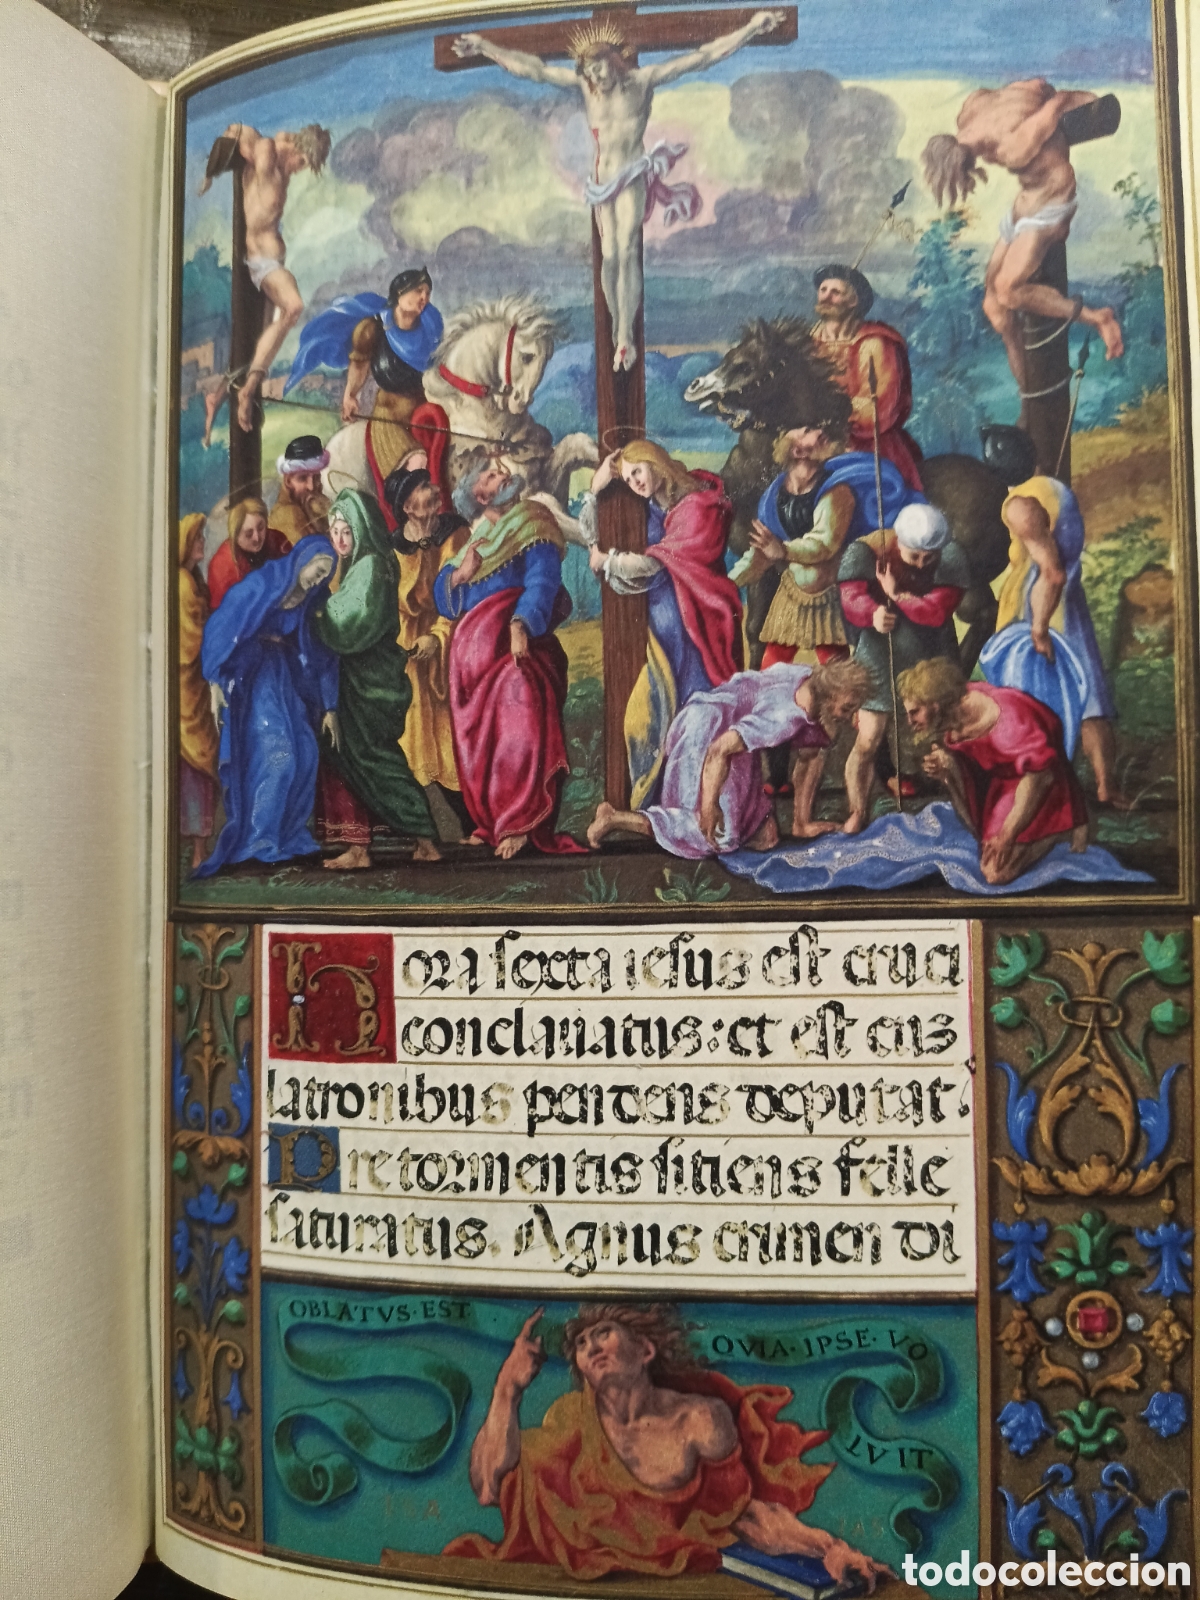 Hora sexta iesus est cruci
conclauatus: et est cus
latronibus pendens deputat.
Pre tormentis sitiens felle
saturatus. Agnus crimen di
OBLATVS·EST
QVIA·IPSE·VO
LVIT
todocoleccion